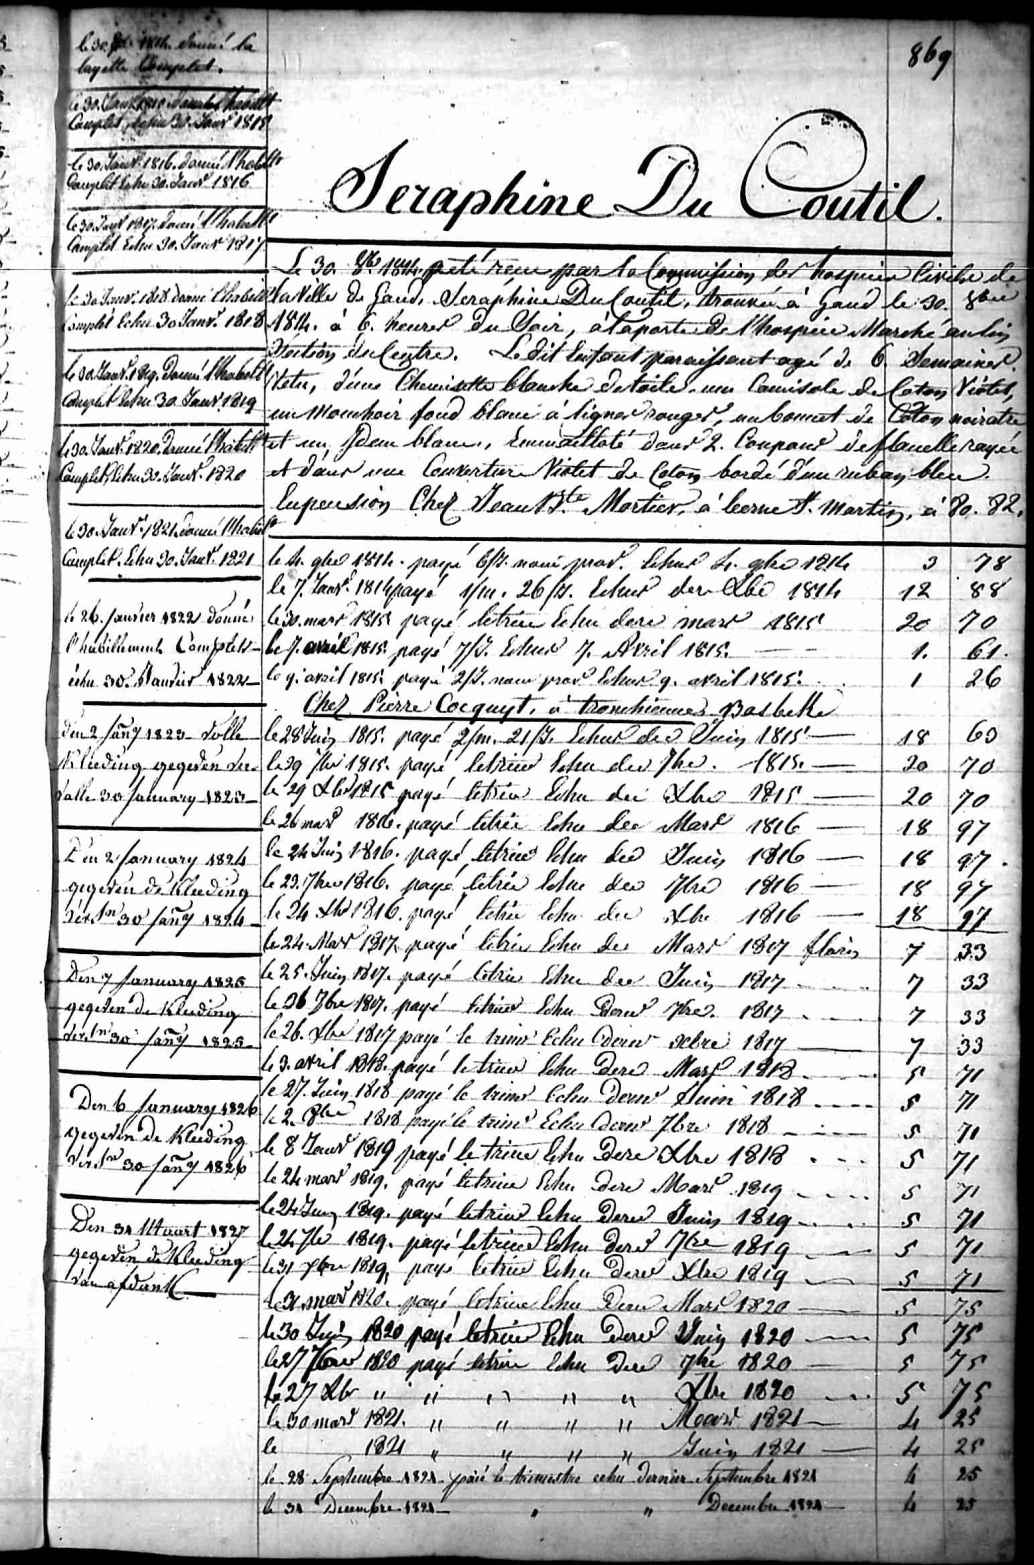 869
Seraphine Du Coutil.
le 30. 1814. donné la
layette Complet.
Complet, Echu 30. Janv. 1815
le 30. Janv. 1816. donné l'habillt
Complet Echu 30. Janv. 1816
le 30 Janv 1817. donné l'habillt
Complet Echu 30. Janv. 1817
le 30 Janv. 1818 donné l'habillt
Complet Echu 30 Janvr. 1818
le 30. Janv. 1819. donné l'habillt
Complet Echu 30. Janv. 1819
le 30. Janv. 1820. donné l'habillt
Complet Echu 30. Janv. 1820
le 30. Janv. 1821. donné l'habillt
Complet. Echu 30. Janv. 1821
le 26. Janvier 1822 donné
l'habillement Complet
échu 30 Janvier 1822
Den 2 Jany 1823 volle
Kleeding gegeven
30 January 1823
Den 2 January 1824
gegeven de Kleeding
30 Jany 1824
Den 7 January 1825
gegeven de Kleeding
30 Jany 1825
Den 6 January 1826
gegeven de Kleeding
30 Jany 1826
Den 31 Maart 1827
gegeven de Kleeding
van afdank
Le 30. 8bre 1814. a été reçue par la Commission des hospices Civils de
la Ville de Gand, Seraphine Du Coutil, trouvée à Gand le 30. 8bre
1814. à 6. heures du Soir, à la porte de l'hospice Marché au lin
Section du Centre. Le dit Enfant paraissant agé de 6 Semaines.
Vetu, d'une Chemisette blanche de toile, une Camisole de Coton Violet,
un Mouchoir fond blanc à lignes rouges, un bonnet de Coton noiratre
et un idem blanc, Emmailloté dans 2. Coupons de flanelle rayée
et dans une Couverture Violet de Coton bordé d'un ruban bleu.
En pension Chez Jean Bte Mortier, à Leerne St. Martin, à 80. 82.
le 4. 9bre 1814. payé 6/J. Echus 4. 9bre 1814 3 78
le 7. Janvr. 1814 payé 1/m. 26/J. Echus der Xbre 1814 12 88
le 30. mars 1815 payé letrim Echu dere mars 1815 20 70
le 7. avril 1815. payé 7/J. Echus 7. Avril 1815. 1. 61.
le 9. avril 1815. payé 2/J. Echus 9. avril 1815. 1 26
Chez Pierre Cocquyt, à tronchiennes Basbeke
le 28 Juin 1815. payé 2/m. 21/J. Echus der Juin 1815 18 63
le 29 7bre 1815. payé letrim Echu der 7bre. 1815. 20 70
le 29 Xbre 1815 payé letrim Echu der Xbre 1815 20 70
le 26 mars 1816. payé letrim Echu der Mars 1816 18 97
le 24 Juin 1816. payé letrim Echu der Juin 1816 18 97.
le 23. 7bre 1816. payé letrim Echu der 7bre 1816 18 97
le 24 Xbre 1816. payé letrim Echu der Xbre 1816 18 97
le 24. Mars 1817. payé letrim Echu der Mars 1817 florins 7 33
le 25. Juin 1817. payé letrim Echu der Juin 1817 7 33
le 26 7bre 1817. payé letrim Echu derns 7bre. 1817 7 33
le 26. Xbre 1817 payé le trims Echu derns Xbre 1817 7 33
le 3. avril 1818. payé letrim Echu dere Mars 1818 5 71
le 27. Juin 1818 payé le trims Echu derns Juin 1818 5 71
le 2 8bre 1818 payé le trims Echu derns 7bre 1818 5 71
le 8 Janvr 1819 payé le trims Echu dere Xbre 1818 5 71
le 24 mars 1819. payé letrim Echu dere Mars 1819 5 71
le 24 Juin 1819. payé letrim Echu dere Juin 1819 5 71
le 24 7bre 1819. payé letrim Echu dere 7bre 1819 5 71
le 31 Xbre 1819, payé letrim Echu dere Xbre 1819 5 71
le 31 mars 1820. payé letrim Echu dere Mars 1820 5 75
le 30 Juin 1820 payé letrim Echu dere Juin 1820 5 75
le 27 7bre 1820 payé letrim Echu dere 7bre 1820 5 75
le 27 Xbre " " " " " Xbre 1820 5 75
le 30 mars 1821. " " " " Mars 1821 4 25
le 1821 " " " " Juin 1821 4 25
le 28 Septembre 1821 payé le trimestre echu dernier Septembre 1821 4 25
le 31 Decembre 1821 " " Decembre 1821 4 25